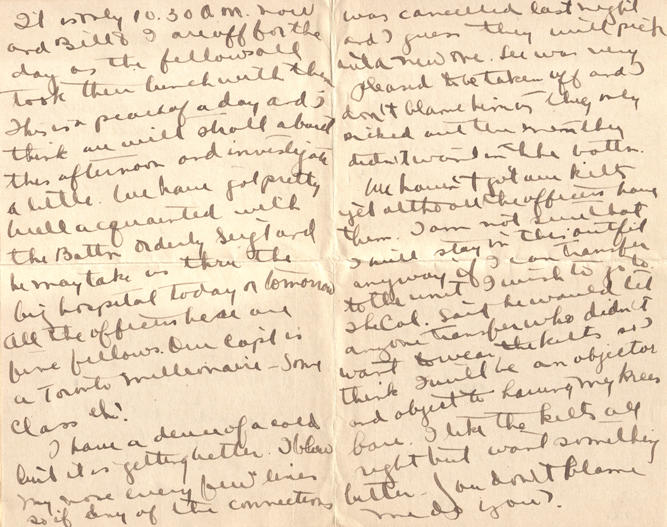 It is only 10.30 A.M. now
and Bill & I are off for the
day as the fellows all
took their lunch with them
This is a peach of a day and I
think we will stroll about
this afternoon and investigate
a little. We have got pretty
well acquainted with
the Battn orderly Sergt and
he may take us thru the
big hospital today or tomorrow
All the officers here are
fine fellows. Our capt is
a Toronto millionaire - Some
class eh!
I have a deuce of a cold
but it is getting better. I blow
my nose every few lines
so if any of the connections
was cancelled last night
and I guess they will pick
out a new one. Lee was very
pleased to be taken off and I
don't blame him as they only
picked out the men they
didn't want in the battn.
We haven't got our kilts
yet although the officers have
them. I am not sure that
I will stay in this outfit
anyway if I can transfer
to the unit I wish to go to.
The Col. said he would let
anyone transfer who didn't
want to wear the kilts so I
think I will be an objector
and object to having my knees
bare. I like the kilts all
right but want something
better. You don't blame
me do you?